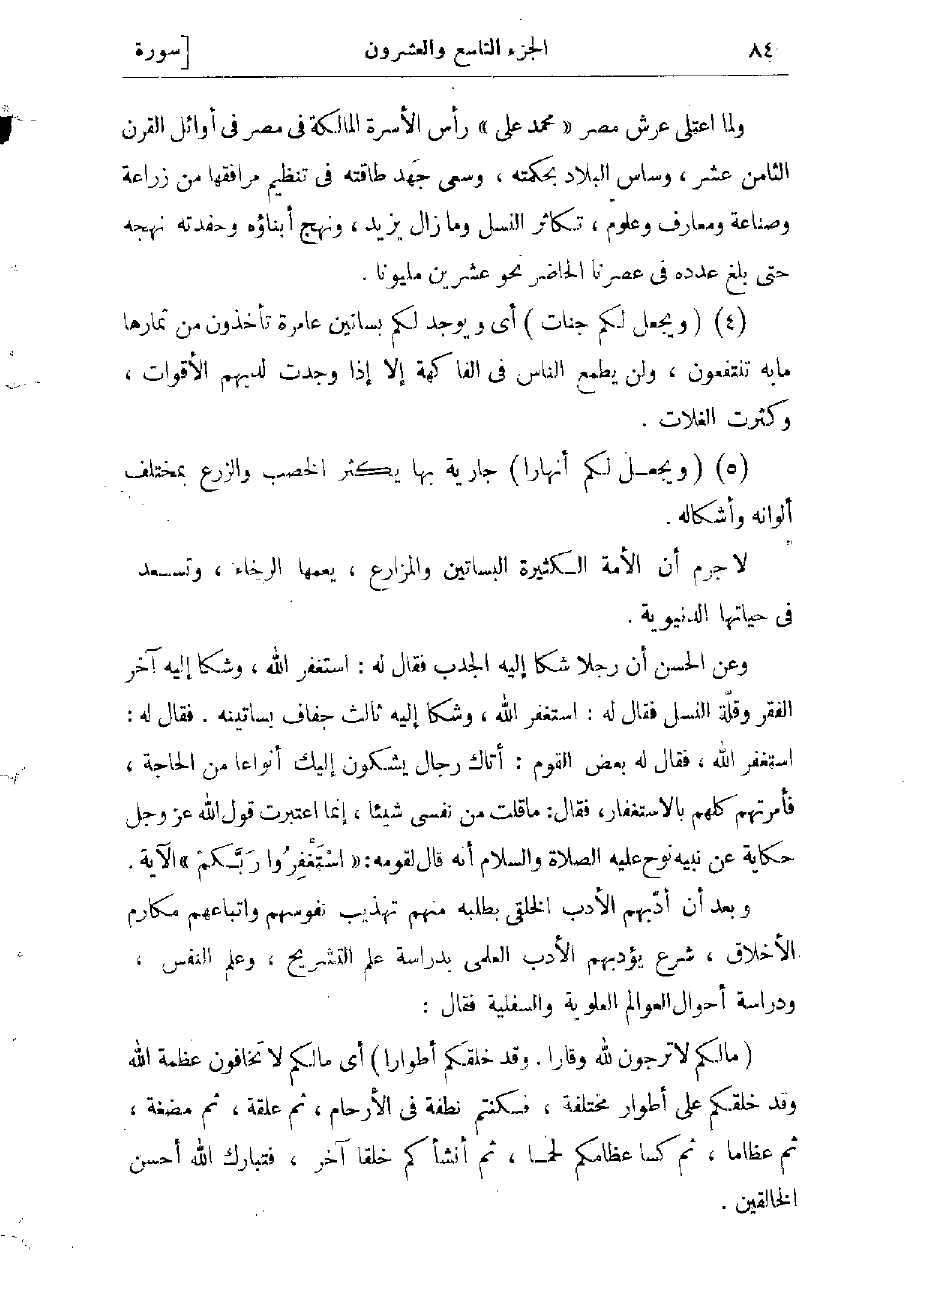 ٨٤ الجزء التاسع والعشرون [سورة
ولما اعتلى عرش مصر « محمد على » رأس الأسرة المالكة فى مصر فى أوائل القرن
الثامن عشر ، وساس البلاد بحكمته ، وسعى جَهد طاقته فى تنظيم مرافقها من زراعة
وصناعة ومعارف وعلوم ، تكاثر النسل وما زال يزيد ، ونهج أبناؤه وحفدته نهجه
حتى بلغ عدده فى عصرنا الحاضر نحو عشرين مليونا .
(٤) ( ويجعل لكم جنات ) أى ويوجد لكم بساتين عامرة تأخذون من ثمارها
مابه تنتفعون ، ولن يطمع الناس فى الفاكهة إلا إذا وجدت لديهم الأقوات ،
وكثرت الغلات .
(٥) ( ويجعل لكم أنهارا ) جارية بها يكثر الخصب والزرع بمختلف
ألوانه وأشكاله .
لا جرم أن الأمة الكثيرة البساتين والمزارع ، يعمها الرخاء ، وتسعد
فى حياتها الدنيوية .
وعن الحسن أن رجلا شكا إليه الجدب فقال له : استغفر الله ، وشكا إليه آخر
الفقر وقلّة النسل فقال له : استغفر الله ، وشكا إليه ثالث جفاف بساتينه . فقال له :
استغفر الله ، فقال له بعض القوم : أتاك رجال يشكون إليك أنواعا من الحاجة ،
فأمرتهم كلهم بالاستغفار، فقال: ماقلت من نفسى شيئا ، إنما اعتبرت قول الله عز وجل
حكاية عن نبيه نوح عليه الصلاة والسلام أنه قال لقومه: « اسْتَغْفِرُوا رَبَّكُمْ » الآية .
وبعد أن أدّبهم الأدب الخلقى بطلبه منهم تهذيب نفوسهم واتباعهم مكارم
الأخلاق ، شرع يؤدبهم الأدب العلمى بدراسة علم التشريح ، وعلم النفس ،
ودراسة أحوال العوالم العلوية والسفلية فقال :
( مالكم لاترجون لله وقارا . وقد خلقكم أطوارا ) أى مالكم لا تخافون عظمة الله
وقد خلقكم على أطوار مختلفة ، فكنتم نطفة فى الأرحام ، ثم علقة ، ثم مضغة ،
ثم عظاما ، ثم كسا عظامكم لحما ، ثم أنشأكم خلقا آخر ، فتبارك الله أحسن
الخالقين .